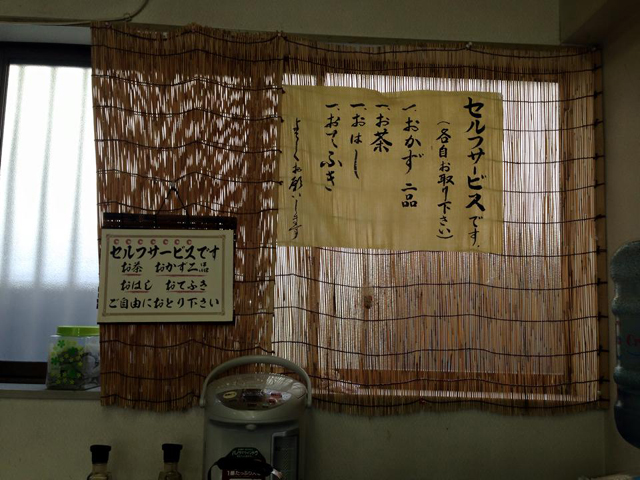 セルフサービスです。
（各自お取り下さい）
一、おかず 二品
一、お茶
一、おはし
一、おてふき
よろしくお願いします
セルフサービスです
お茶 おかず二品
おはし おてふき
ご自由におとり下さい